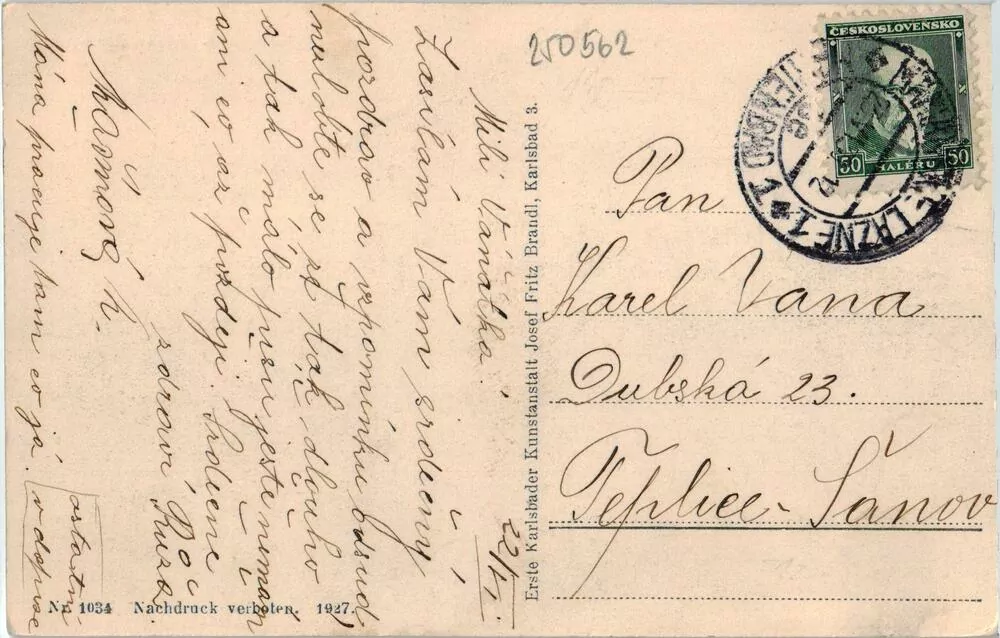 250562
ČESKOSLOVENSKO
50 HALÉŘŮ 50
LÁZNĚ 1
Pan
Karel Vana
Dubská 23.
Teplice-Šanov
Erste Karlsbader Kunstanstalt Josef Fritz Brandl, Karlsbad 3.
Milí Váňátka!
Zasílám Vám srdečný
pozdrav a vzpomínku odsud
nezlobte se že tak dlouho
a tak málo píšu ještě nemám
ani co až později. Srdečně
zdraví
Růža.
Máňa pracuje tam co já.
ostatní
v dopise
Nr. 1034 Nachdruck verboten. 1927.